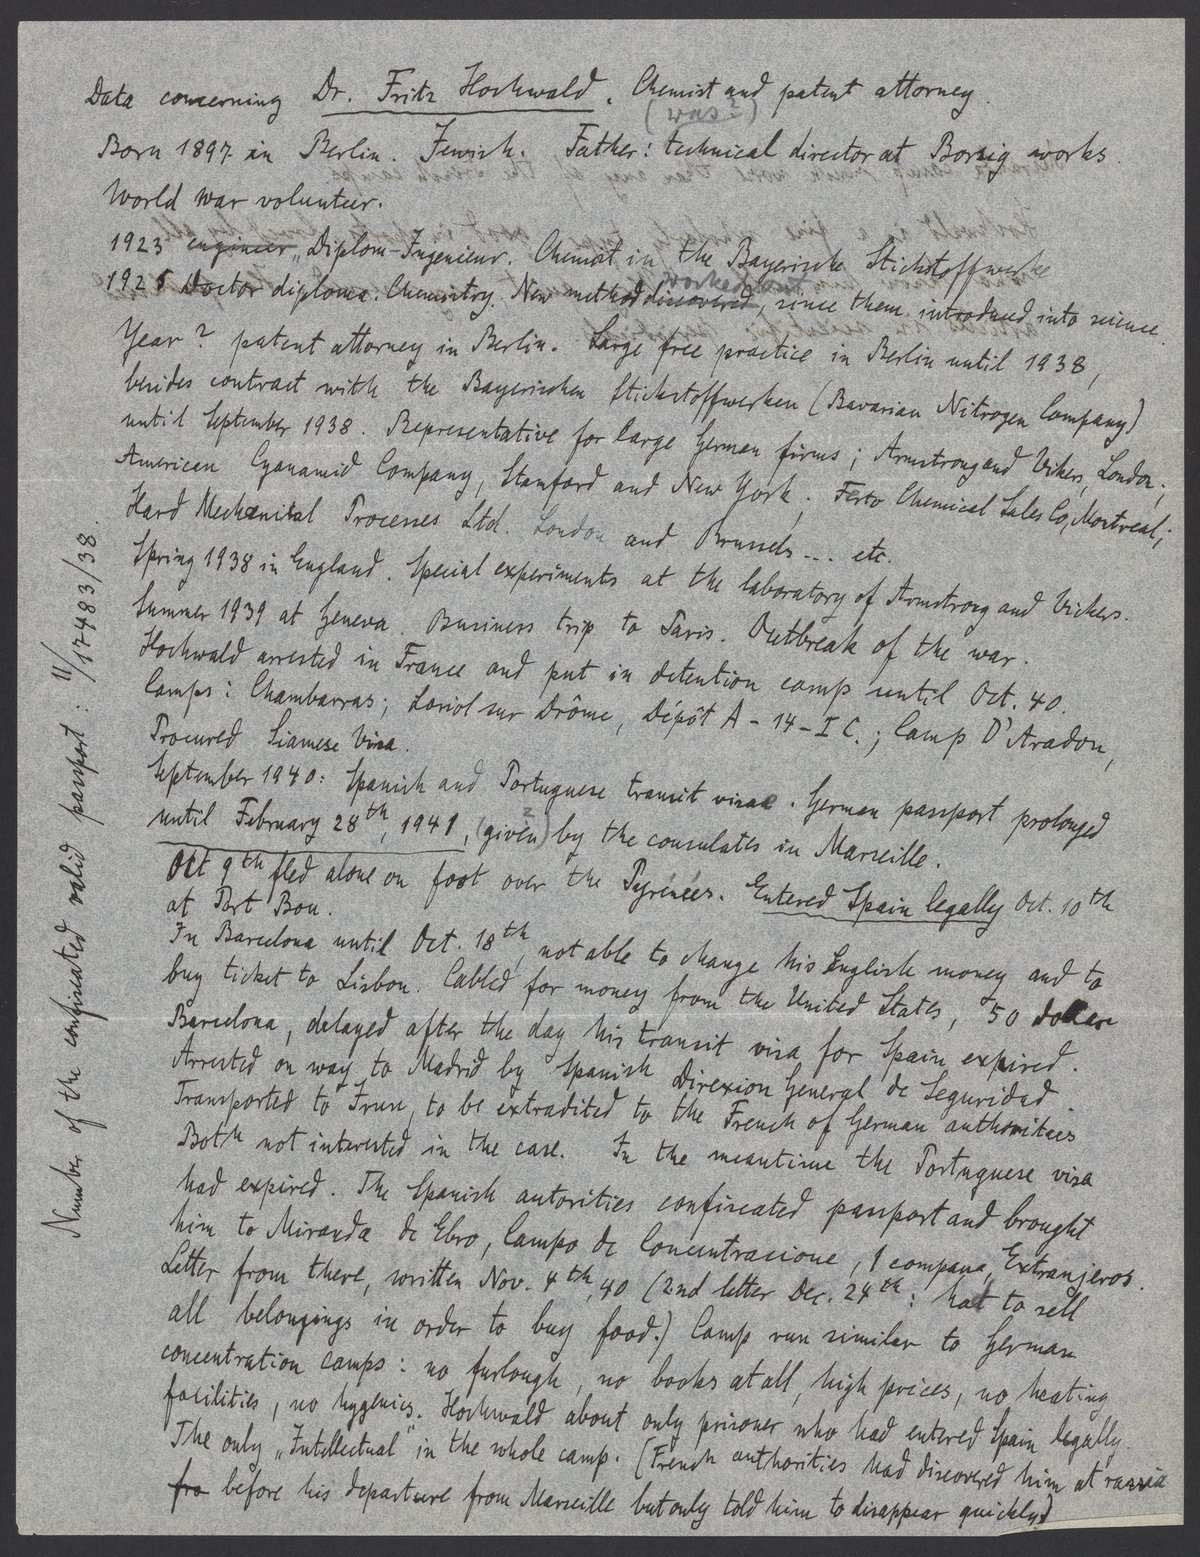 Data concerning Dr. Fritz Hochwald. Chemist and patent attorney.
(was?)
Born 1897 in Berlin. Jewish. Father: technical director at Borsig works.
World war volunteer.
1923 engineer „Diplom-Ingenieur. Chemist in the Bayerische Stickstoffwerke
worked out
1925 Doctor diploma. Chemistry. New method discovered, since them introduced into science.
Year? patent attorney in Berlin. Large free practice in Berlin until 1938,
besides contract with the Bayerischen Stickstoffwerken (Bavarian Nitrogen Company)
until September 1938. Representative for large German firms; Armstrong and Vickers, London;
American Cyanamid Company, Stamford and New York; Ferto Chemical Sales Co, Montreal;
Hard Mechanical Processes Ltd. London and Brussels ... etc.
Spring 1938 in England. Special experiments at the laboratory of Armstrong and Vickers.
Summer 1939 at Geneva. Business trip to Paris. Outbreak of the war.
Hochwald arrested in France and put in detention camp until Oct. 40.
Camps: Chambarras; Loriol sur Drôme, Dépôt A-14-I C.; Camp D'Aradon,
Procured Siamese Visa.
September 1940: Spanish and Portuguese transit visae. German passport prolonged
until February 28th, 1941, (given) by the consulates in Marseille.
Oct 9th fled alone on foot over the Pyrénées. Entered Spain legally Oct. 10th
at Port Bou.
In Barcelona until Oct. 18th, not able to change his English money and to
buy ticket to Lisbon. Cabled for money from the United States, 50 dollars
Barcelona, delayed after the day his transit visa for Spain expired.
Arrested on way to Madrid by Spanish Direxion General de Seguridad.
Transported to Irun, to be extradited to the French of German authorities
Both not interested in the case. In the meantime the Portuguese visa
had expired. The Spanish autorities confiscated passport and brought
him to Miranda de Ebro, Campo de Concentracione, 1 compana, Extranjeros.
Letter from there, written Nov. 4th, 40 (2nd letter Dec. 24th: had to sell
all belongings in order to buy food.) Camp run similar to German
concentration camps: no furlough, no books at all, high prices, no heating
facilities, no hygenics. Hochwald about only prisoner who had entered Spain legally.
The only „Intellectual" in the whole camp. (French authorities had discovered him at razzia
fro before his departure from Marseille but only told him to disappear quickly.)
Number of the confiscated valid passport: II/17483/38.